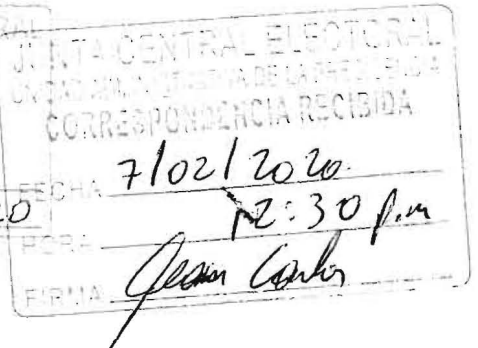 RAL
JUNTA CENTRAL ELECTORAL
CORRESPONDENCIA RECIBIDA
FECHA 7/02/2020.
HORA 12:30 p.m
FIRMA Jean Carlos